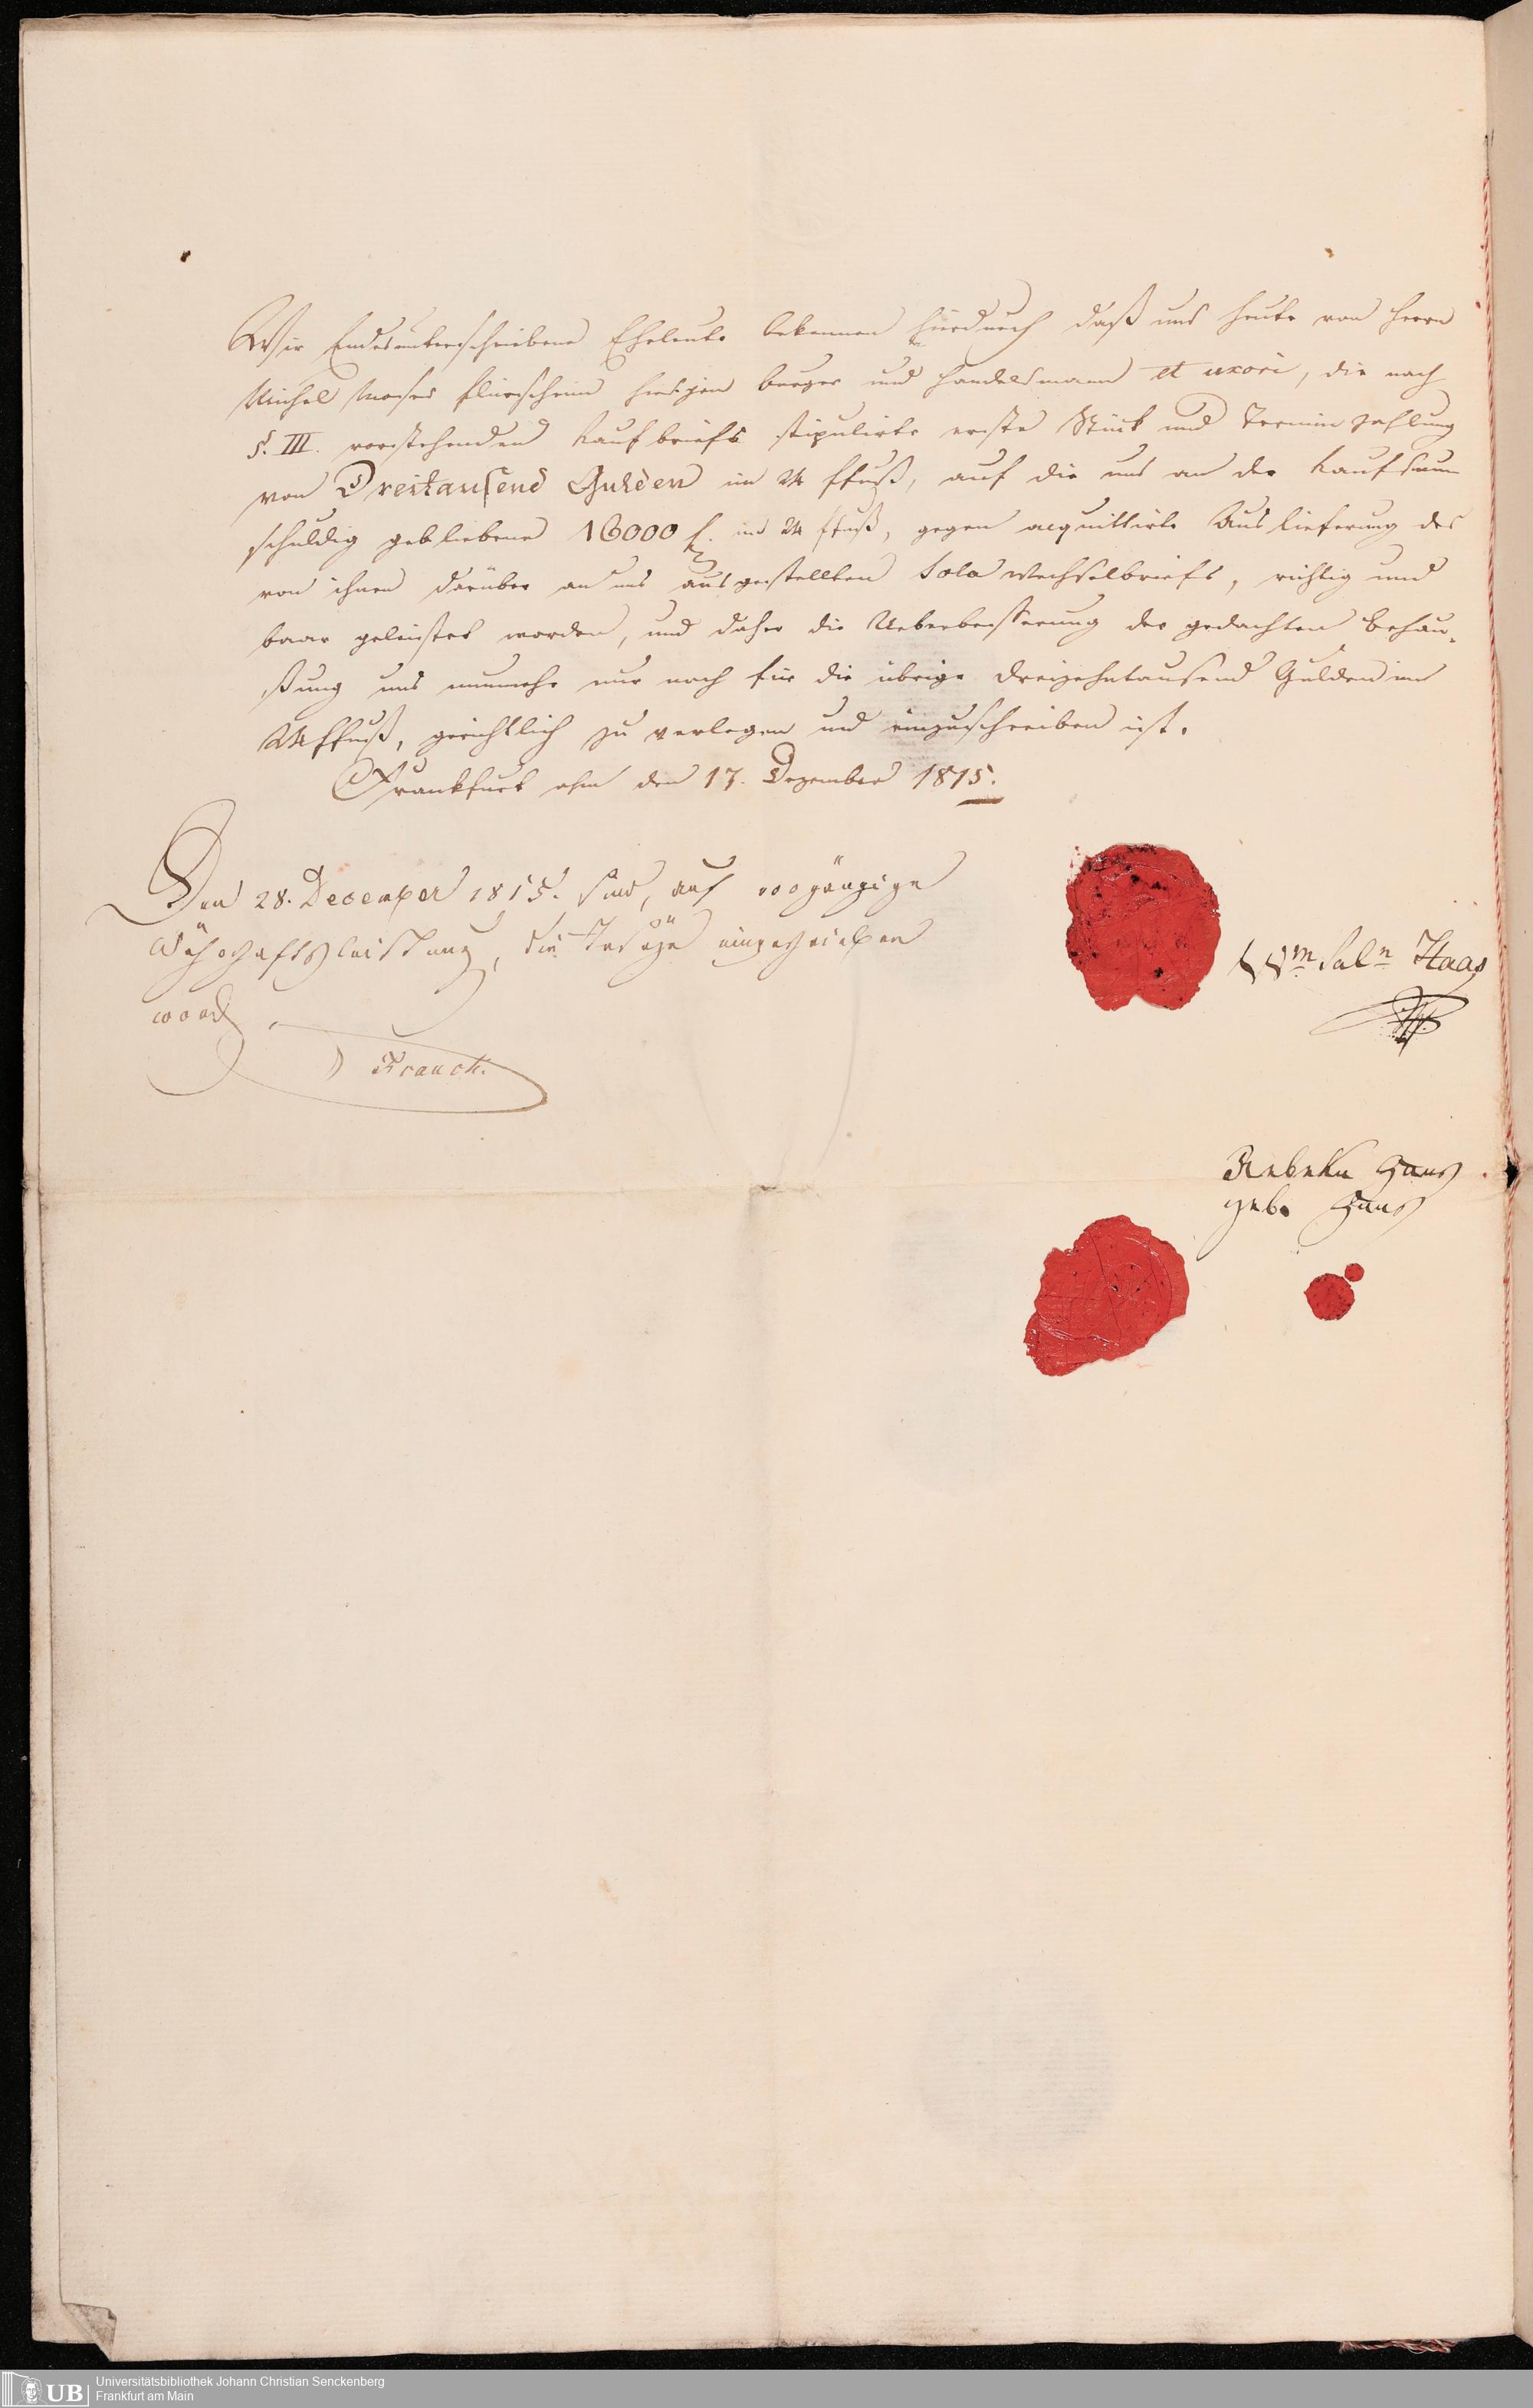 Wir Endesunterschriebene Eheleute bekennen hierdurch daß uns heute von Herrn
Michel Moses Flörsheim hiesigem Burger und Handelsmann et uxori, die nach
§. III. vorstehenden Kaufbriefs stipulirte erste Stück und Terminzahlung
von Dreitausend Gulden im 24 ffuß, auf die uns an der Kaufsumm
schuldig gebliebene 16000 f. im 24 ffuß, gegen acquittirte Auslieferung des
von ihnen darüber an uns ausgestellten Sola Wechselbriefs, richtig und
baar geleistet worden, und daher die Ueberbesserung der gedachten Behau-
ßung uns nunmehr nur noch für die übrige dreizehntausend Gulden im
24 ffuß, gerichtlich zu verlegen und einzuschreiben ist.
Frankfurt a/m den 17. Dezember 1815.
Den 28. December 1815. sind, auf vorgängige
Währschaftsleistung, die eingeschrieben
word.
Franck.
Wm Saln Haas
Rebeka Haas
geb. Haas
UB Universitätsbibliothek Johann Christian Senckenberg
Frankfurt am Main